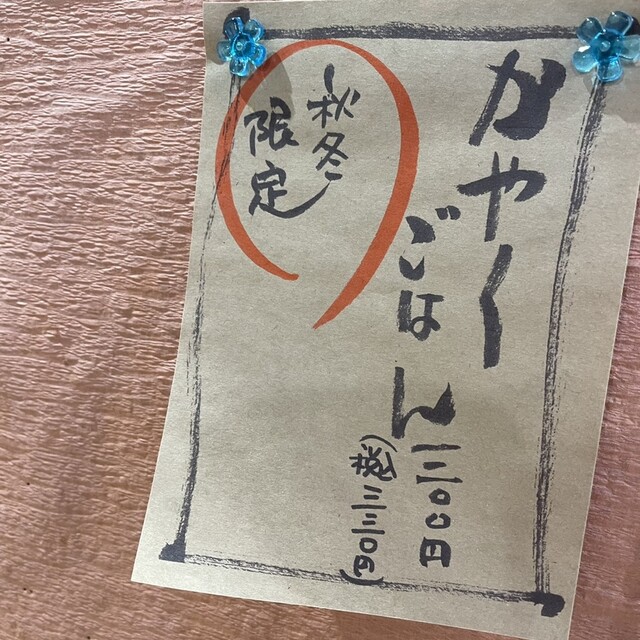 かやく
ごはん 三〇〇円
(税込三三〇円)
秋冬
限定